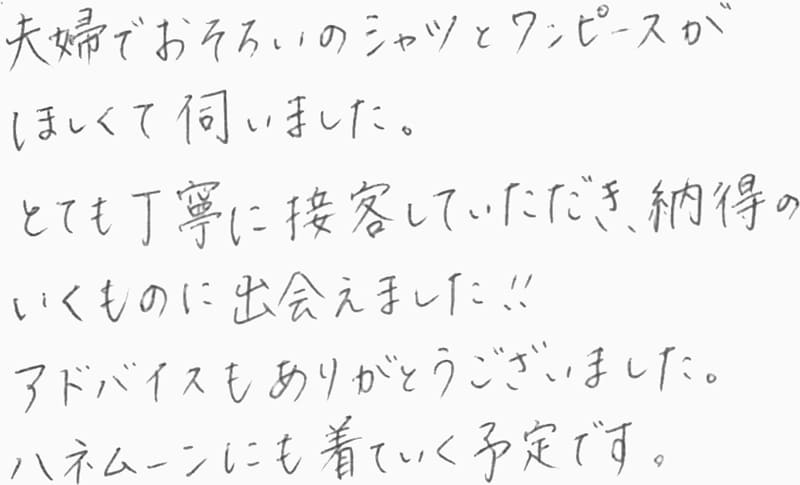 夫婦でおそろいのシャツとワンピースが
ほしくて伺いました。
とても丁寧に接客していただき、納得の
いくものに出会えました!!
アドバイスもありがとうございました。
ハネムーンにも着ていく予定です。